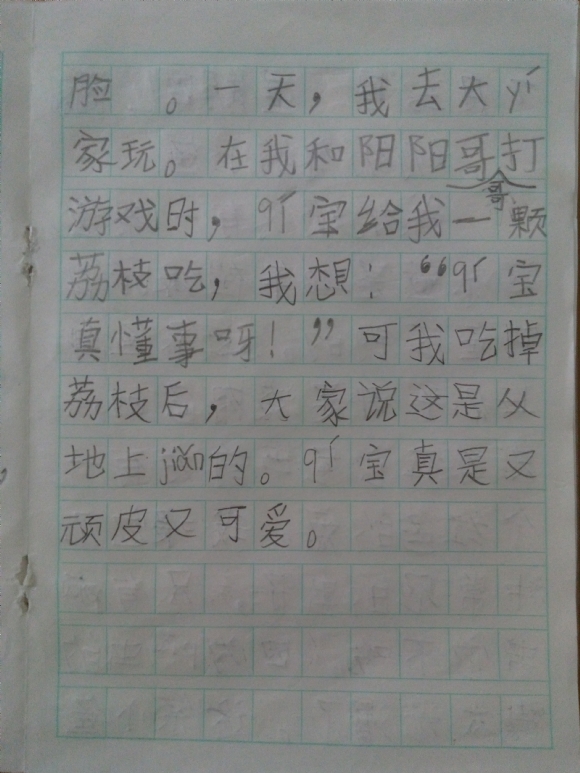 脸。一天，我去大yí
家玩。在我和阳阳哥哥打
游戏时，qí宝给我一颗
荔枝吃，我想：“qí宝
真懂事呀！”可我吃掉
荔枝后，大家说这是从
地上jiǎn的。qí宝真是又
顽皮又可爱。